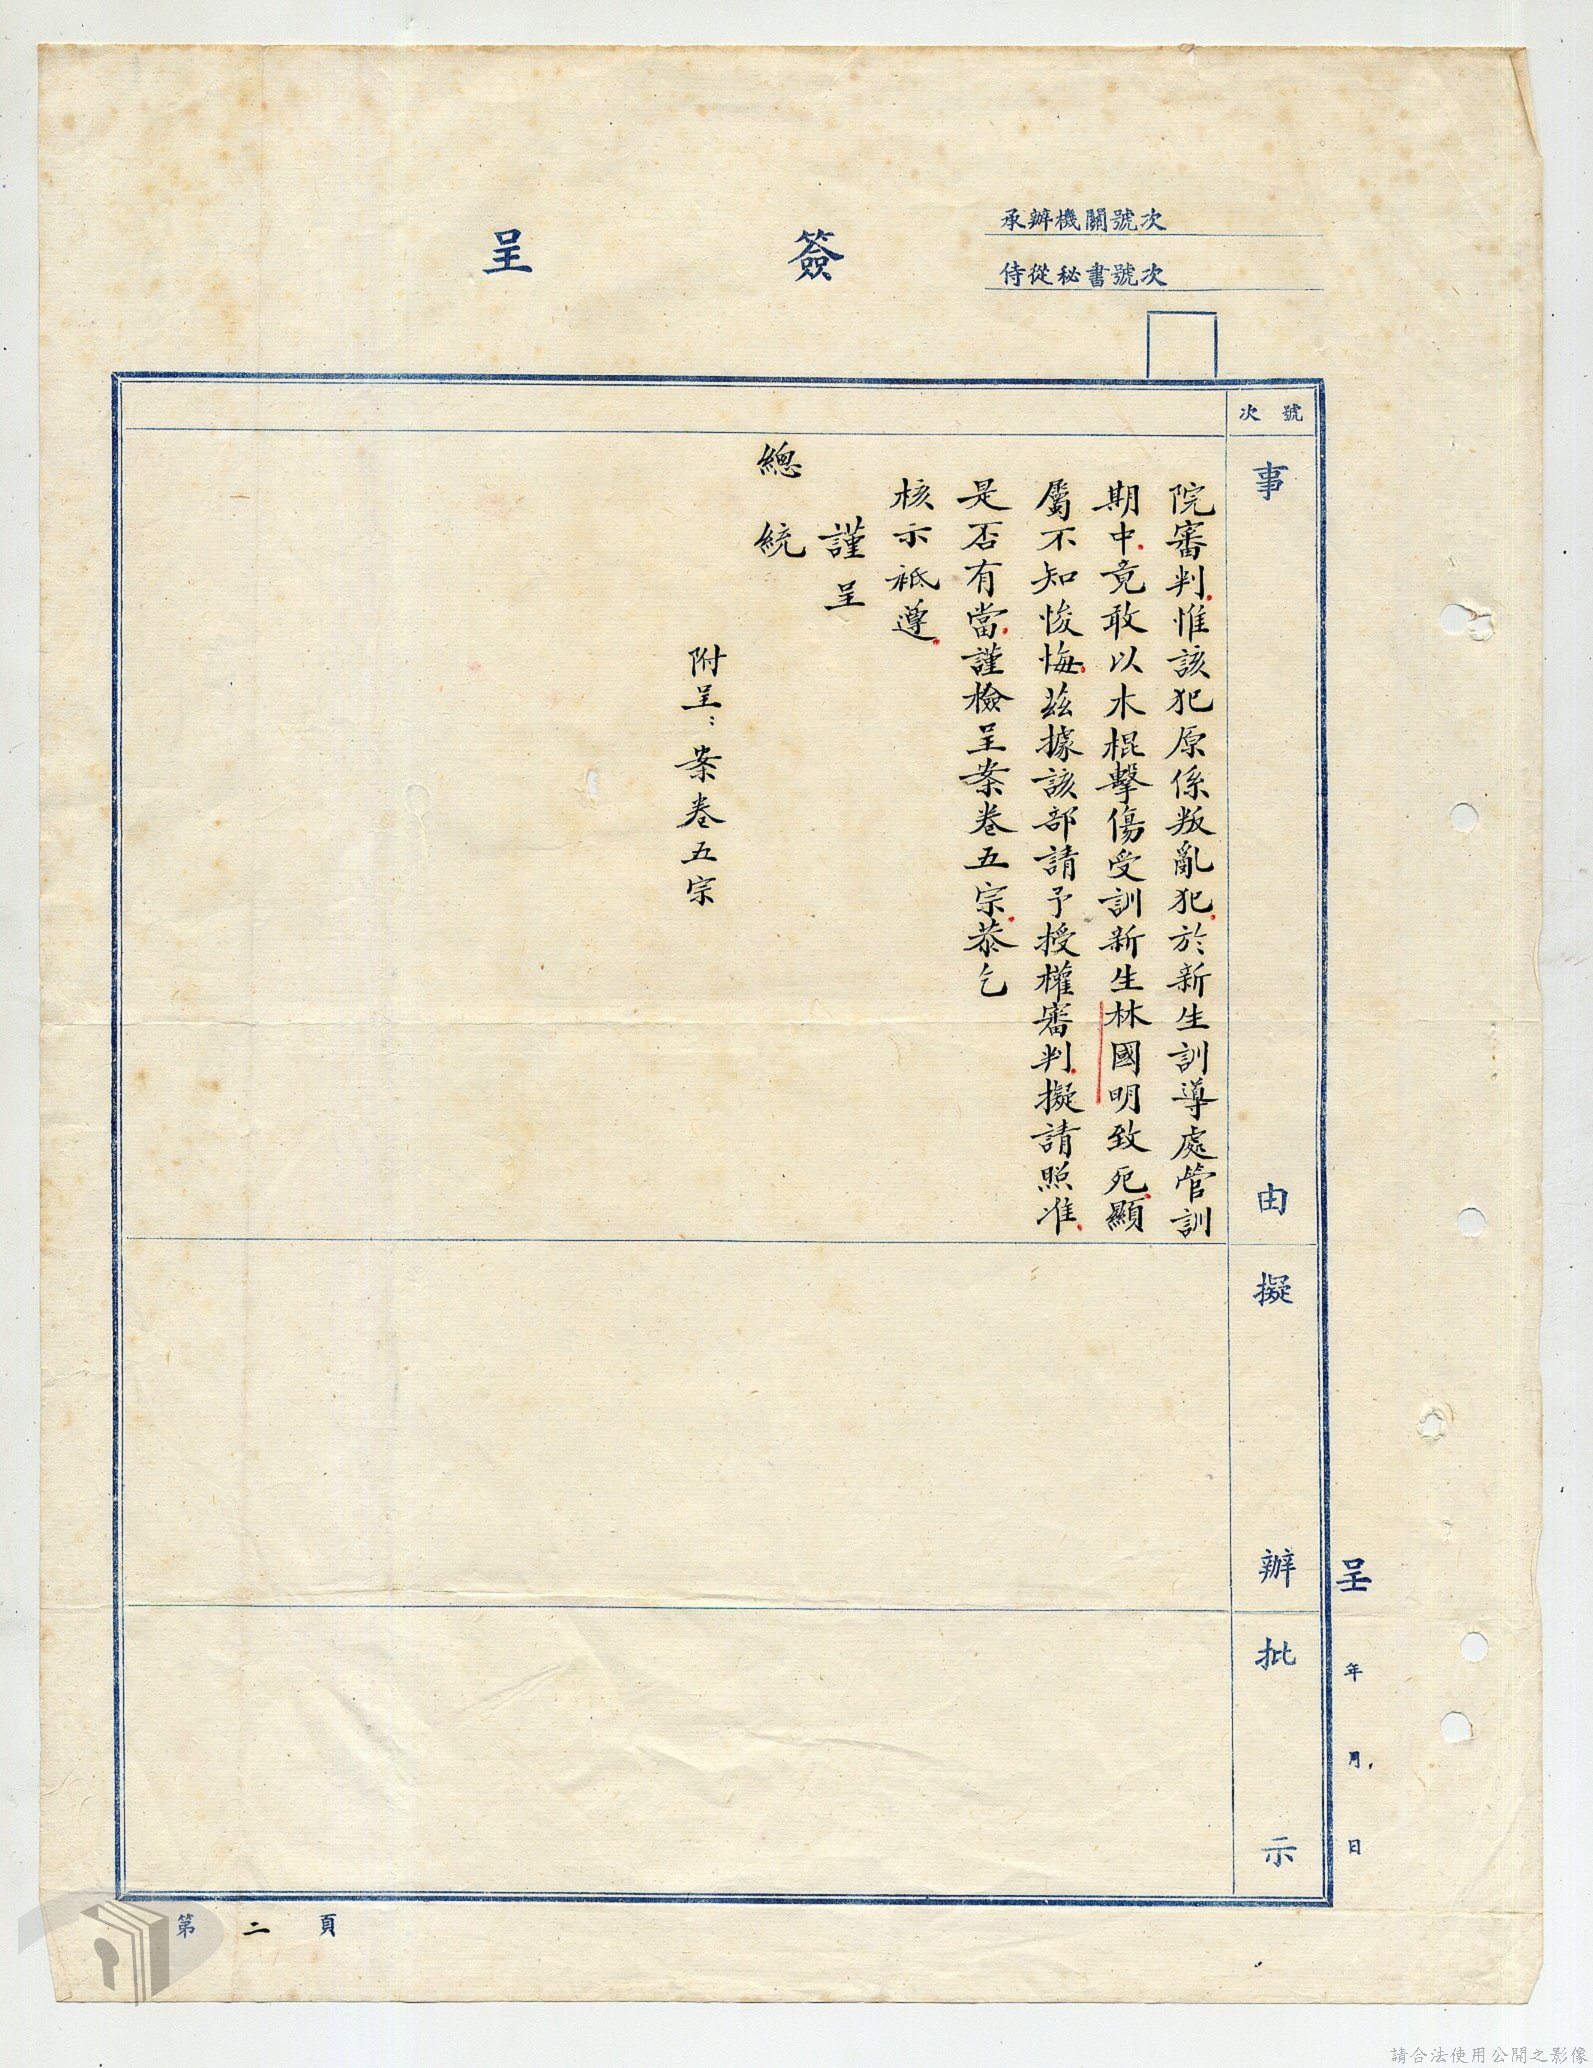 承辦機關號次
侍從秘書號次
簽呈
號次
事由
擬辦
批示
院審判惟該犯原係叛亂犯於新生訓導處管訓
期中竟敢以木棍擊傷受訓新生林國明致死顯
屬不知悛悔茲據該部請予授權審判擬請照准
是否有當謹檢呈案卷五宗恭乞
核示祗遵
謹呈
總統
附呈：案卷五宗
呈 年 月 日
第二頁
請合法使用公開之影像